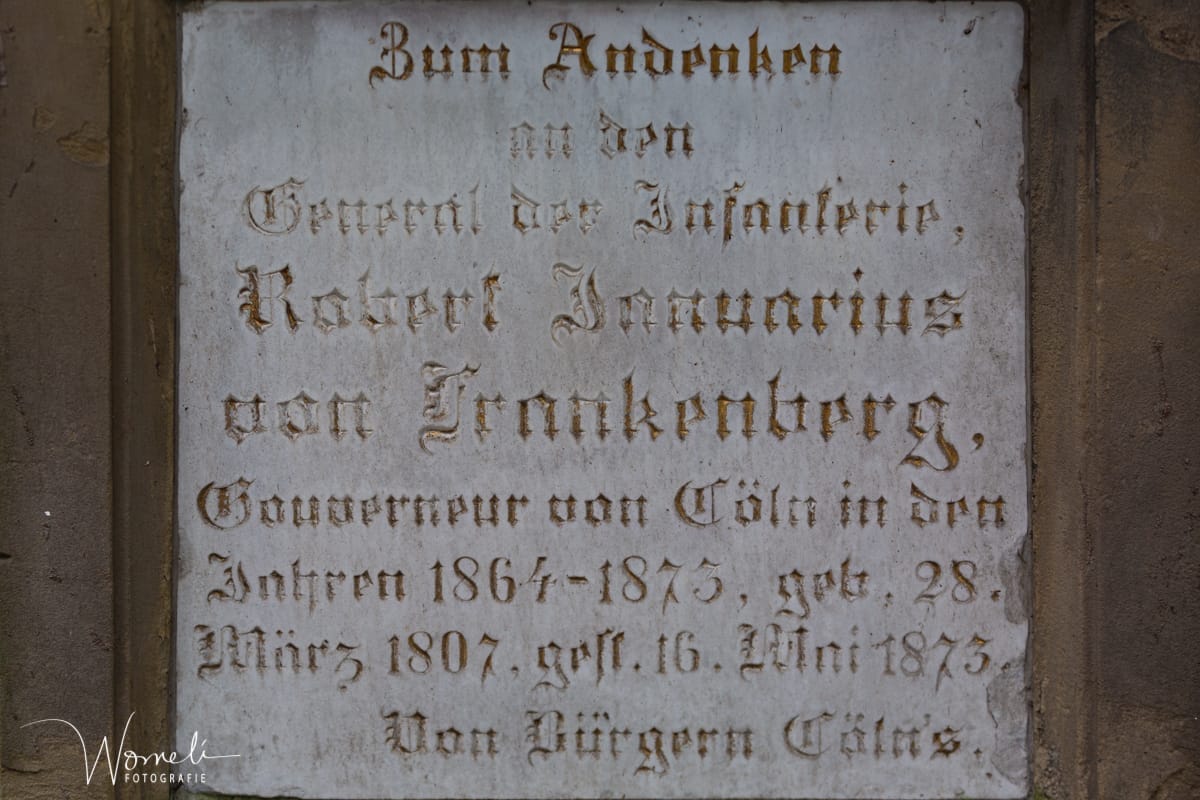 Zum Andenken
an den
General der Infanterie,
Robert Januarius
von Frankenberg,
Gouverneur von Cöln in den
Jahren 1864-1873, geb. 28.
März 1807, gest. 16. Mai 1873.
Von Bürgern Cöln's.
Womeli
FOTOGRAFIE